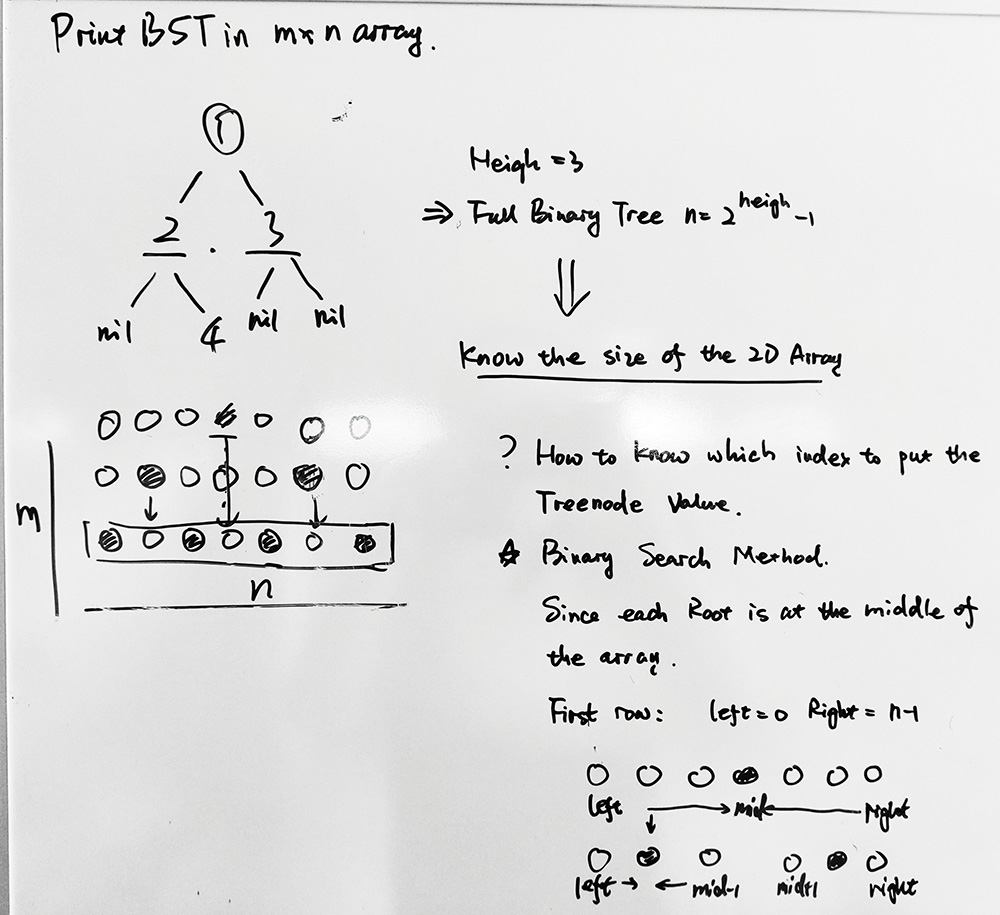 Print BST in m x n array.
1
2 . 3
nil 4 nil nil
Heigh = 3
⇒ Full Binary Tree n = 2^heigh -1
Know the size of the 2D Array
m
n
? How to know which index to put the
Treenode Value.
☆ Binary Search Method.
Since each Root is at the middle of
the array.
First row: left = 0 Right = n-1
left mid right
left → ← mid-1 mid+1 right